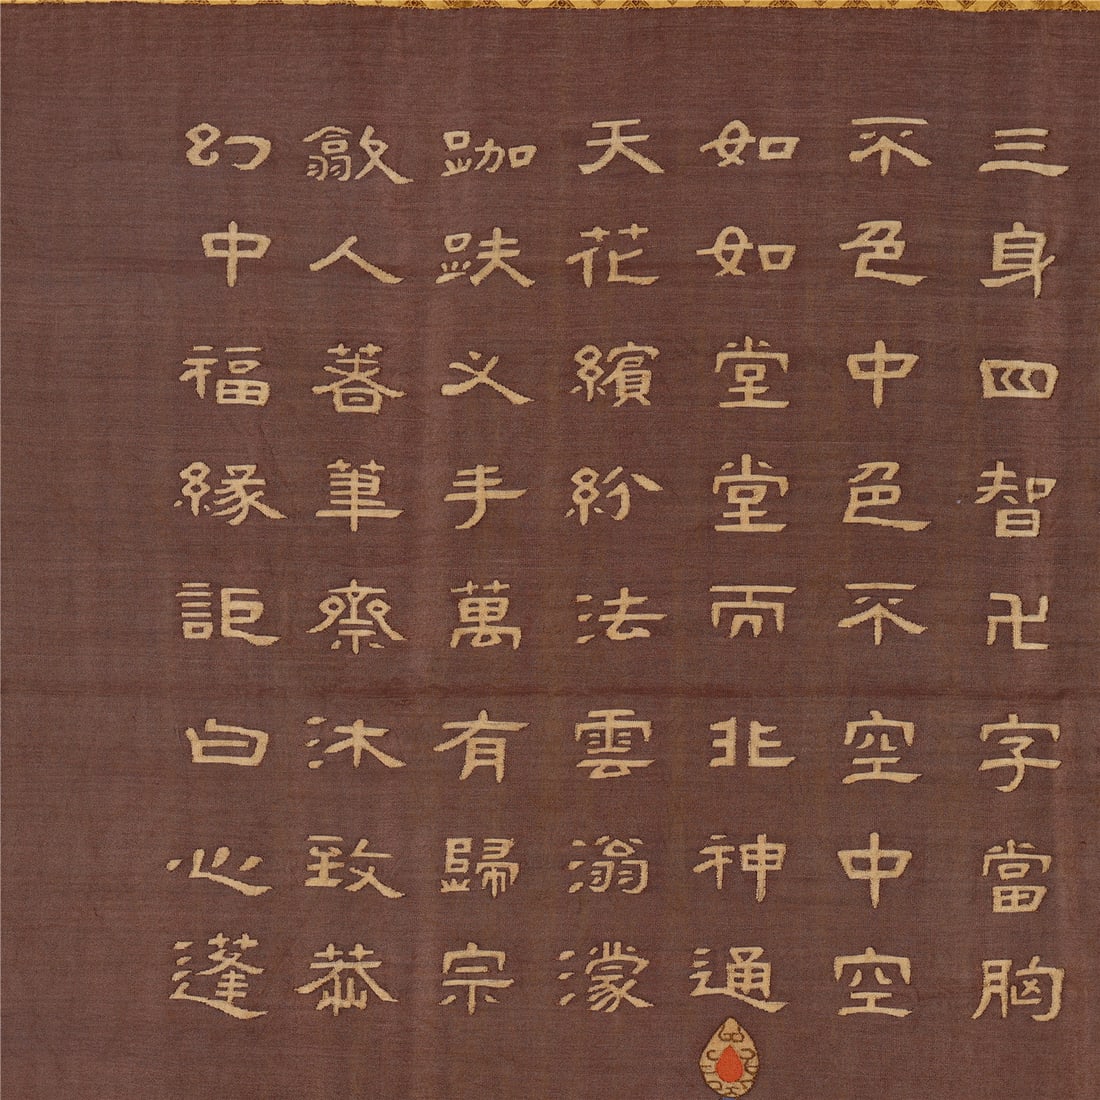 三身四智卍字當胸
不色中色不空中空
如如堂堂而非神通
天花繽紛法雲滃濛
跏趺叉手萬有歸宗
歙人著筆齋沐致恭
幻中福緣詎白心蓬